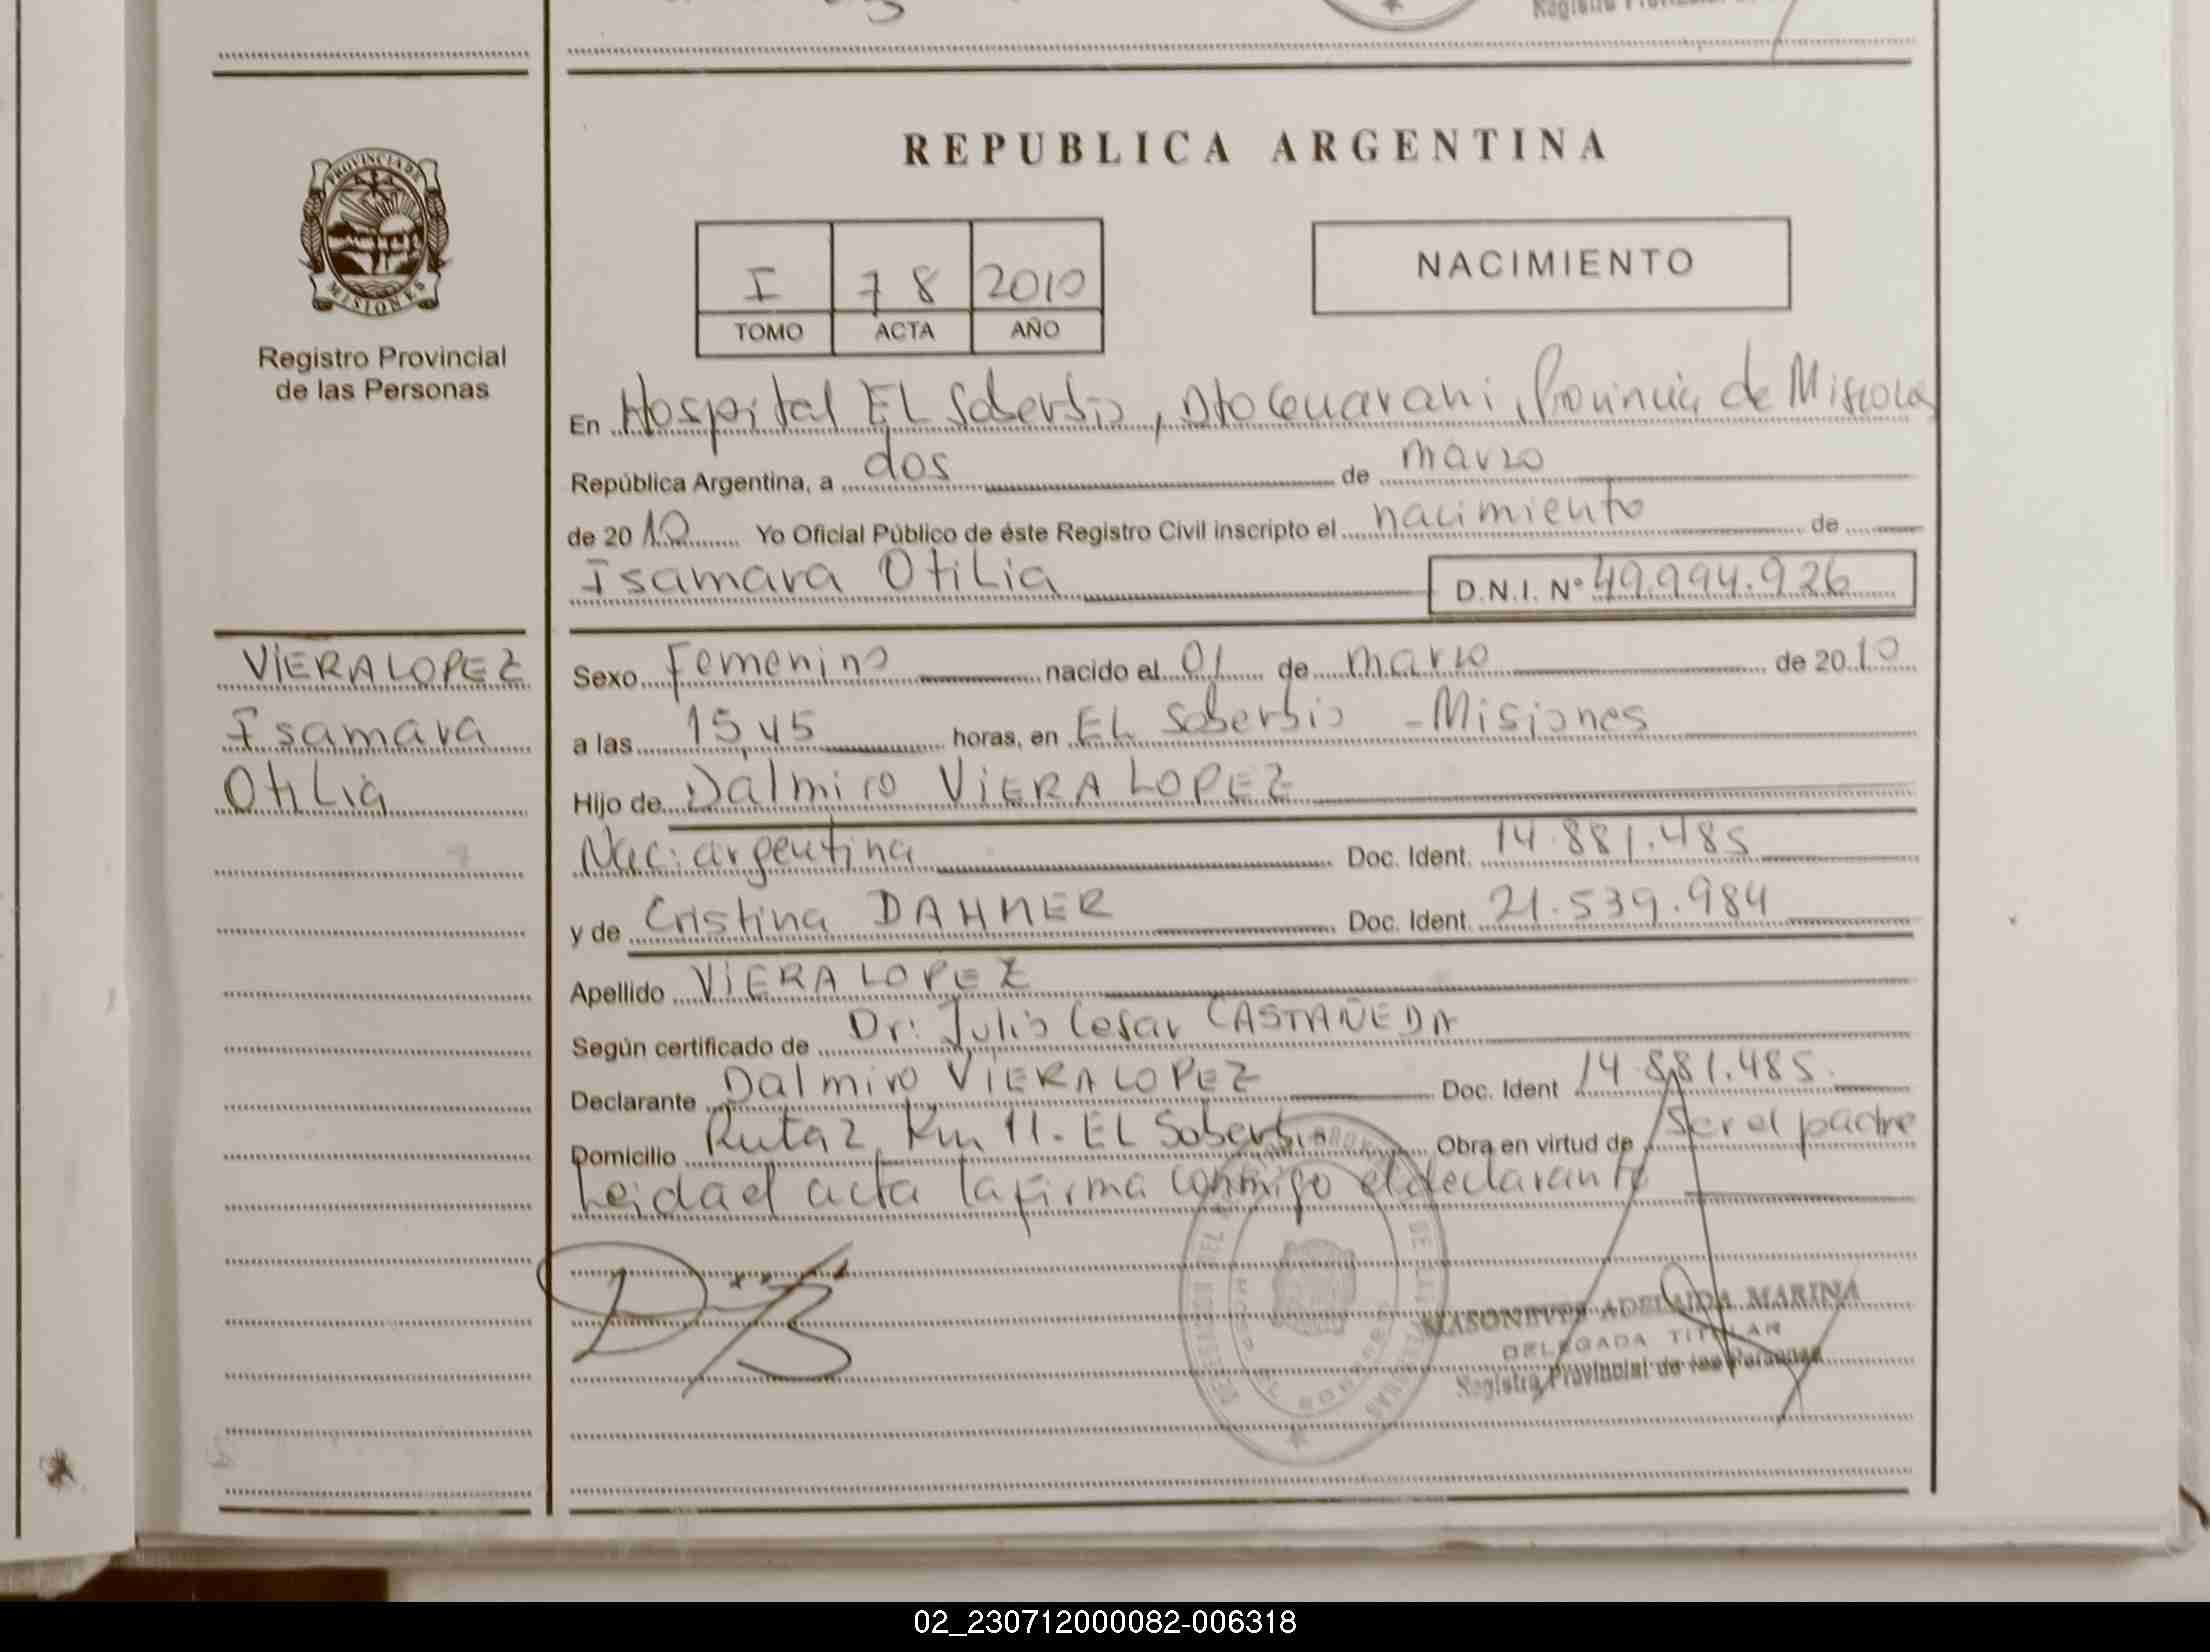 REPUBLICA ARGENTINA
PROVINCIA DE
MISIONES
Registro Provincial
de las Personas
I 78 2010
TOMO ACTA AÑO
NACIMIENTO
En Hospital EL Soberbio, Dto Guarani, Provincia de Misiones
República Argentina, a dos de marzo
de 2010 Yo Oficial Público de éste Registro Civil inscripto el nacimiento de
Isamara Otilia D.N.I. Nº 49.994.926
VIERA LOPEZ
Isamara
Otilia
Sexo Femenino nacido el 01 de marzo de 2010
a las 15,45 horas, en EL Soberbio - Misiones
Hijo de Dalmiro VIERA LOPEZ
Nac: argentina Doc. Ident. 14.881.485
y de Cristina DAHMER Doc. Ident. 21.539.984
Apellido VIERA LOPEZ
Según certificado de Dr: Julio Cesar CASTAÑEDA
Declarante Dalmiro VIERA LOPEZ Doc. Ident 14.881.485.
Domicilio Ruta 2 Km 11. EL Soberbio Obra en virtud de Ser el padre
Leida el acta la firma conmigo el declarante
ADELAIDA MARINA
DELEGADA TITULAR
Registro Provincial de las Personas
02_230712000082-006318